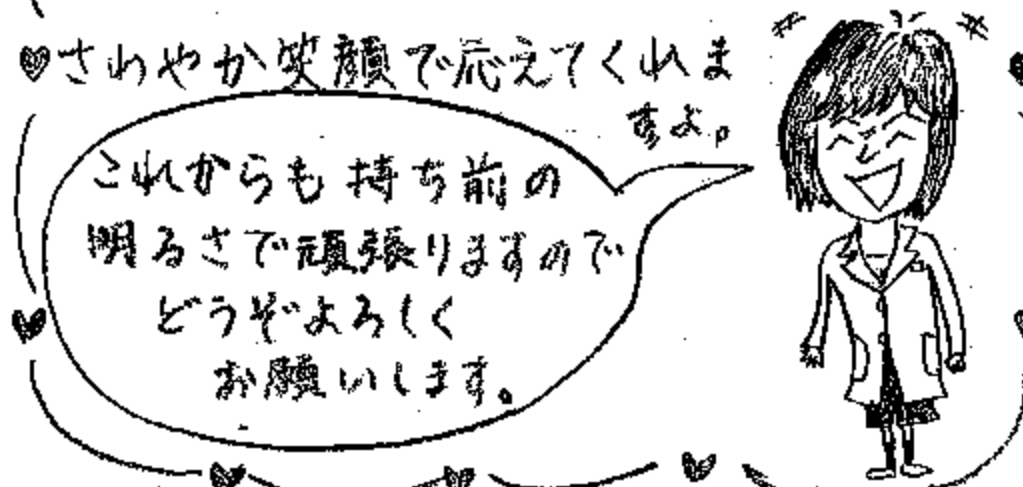 さわやか笑顔で応えてくれま
すよ。
これからも持ち前の
明るさで頑張りますので
どうぞよろしく
お願いします。